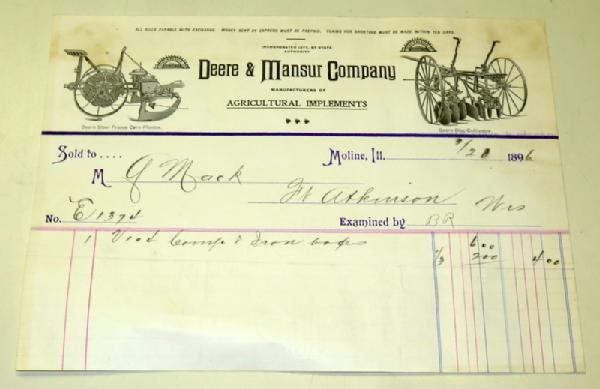 ALL BILLS PAYABLE WITH EXCHANGE. MONEY SENT BY EXPRESS MUST BE PREPAID. CLAIMS FOR SHORTAGE MUST BE MADE WITHIN TEN DAYS.
INCORPORATED 1877, BY STATE
AUTHORITY
Deere & Mansur Company
MANUFACTURERS OF
AGRICULTURAL IMPLEMENTS
Deere Disc Cultivator.
Sold to .... Moline, Ill. 7/28 1896
M G Mack Ft Atkinson Wis
No. E1394 Examined by BR
1 & Iron
6 00
1/3 2 00 4 00